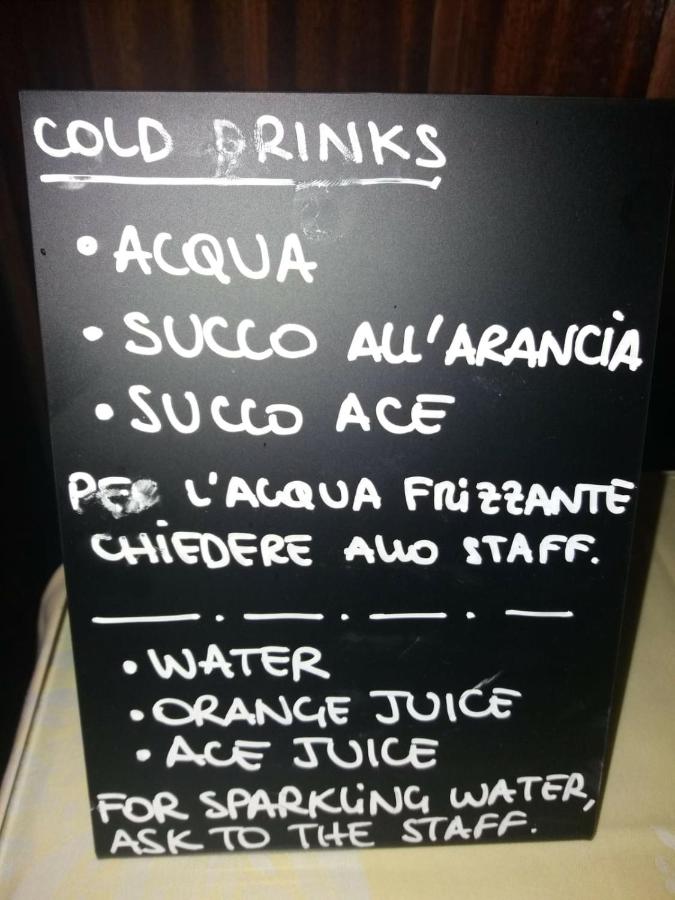 COLD DRINKS
• ACQUA
• SUCCO ALL'ARANCIA
• SUCCO ACE
PER L'ACQUA FRIZZANTE
CHIEDERE ALLO STAFF.
• WATER
• ORANGE JUICE
• ACE JUICE
FOR SPARKLING WATER,
ASK TO THE STAFF.